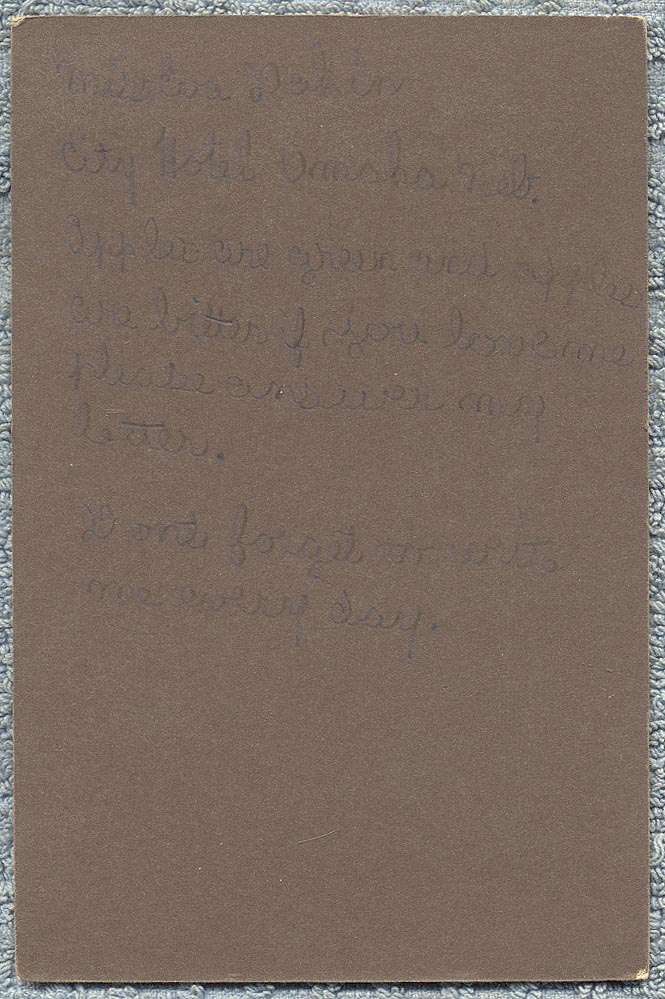 Miss Eva
City Hotel Omaha Neb.
Apples are green and apples
are bitter if you love me
please answer my
letter.
Dont forget to write
me every day.